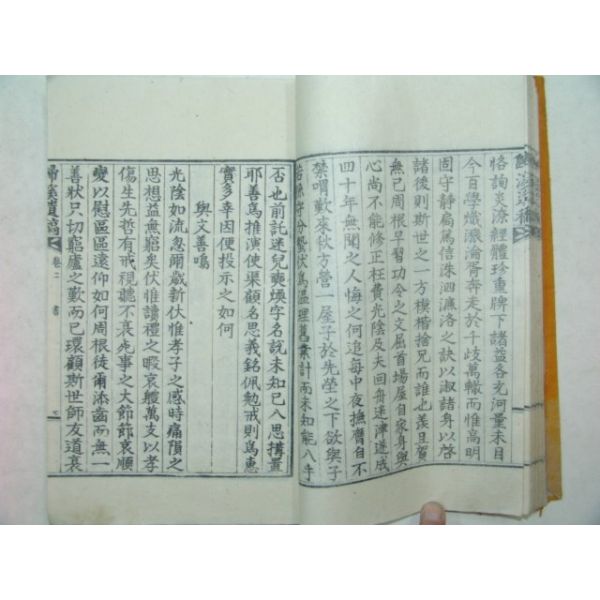 恪詢炎潦經體珍重牌下諸益各允河量未目
今百學熾瀷瀹胥奔走於千歧萬轍而惟高明
固守靜扁篤信洙泗濂洛之訣以淑諸身以啓
諸後則斯世之一方模楷捨兄而誰也羨且賀
無已周根早習功令之文屈首場屋自家身與
心尚不能修正枉費光陰及夫回舟迷津遂成
四十年無聞之人悔之何追每中夜撫膺自不
禁喟歎來秋方營一屋子於先塋之下欲與子
分 伏爲溫理舊業計而未知能入手
否也前託迷兒䕫煥字名說未知已入思搆置
耶善爲推演使渠顧名思義銘佩勉戒則爲惠
實多幸因便投示之如何
與文善鳴
光陰如流忽爾歲新伏惟孝子之感時痛隕之
思想益無窮矣伏惟讀禮之暇哀體萬支以孝
傷生先哲有戒視聽不衰先事之大節節哀順
變以慰區區遠仰如何周根徒爾添齒而無一
善狀只切窮廬之歎而已環顧斯世師友道衰
遺稿 卷二 書